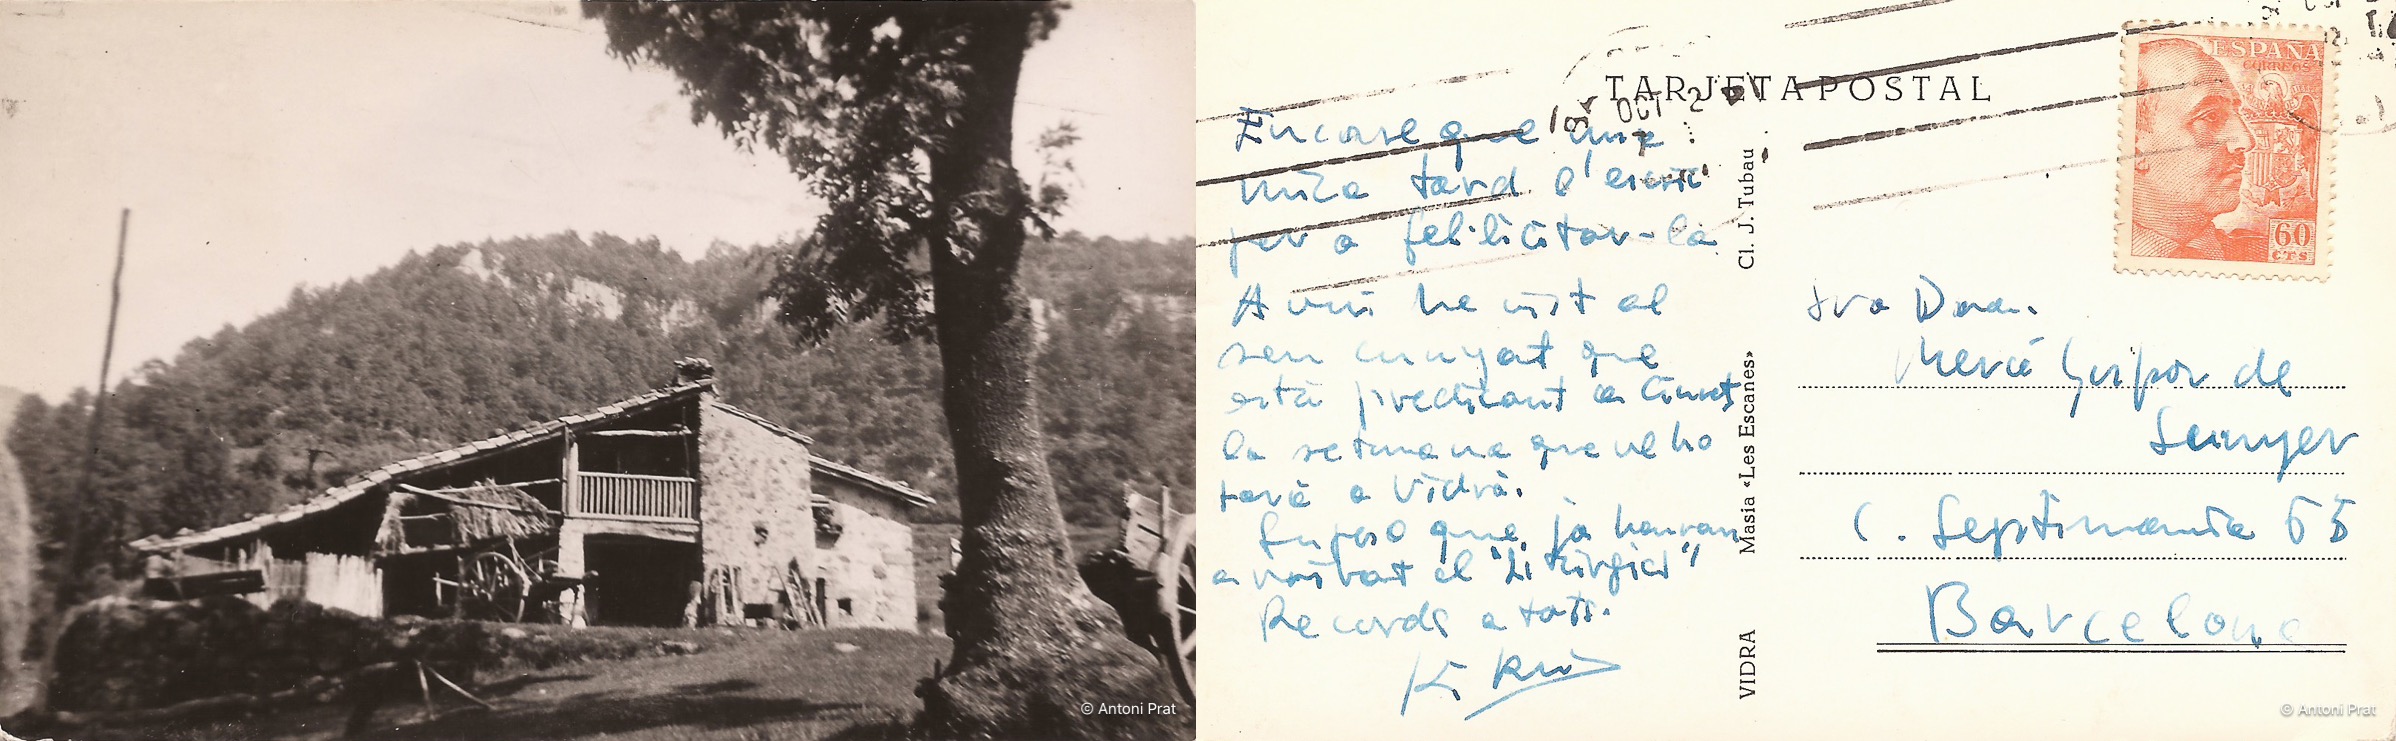 © Antoni Prat
TARJETA POSTAL
OCT
ESPAÑA
CORREOS
60
CTS
Encare que una
mica tard l'escric
per a fel·licitar-la
Avui he vist el
seu cunyat que
està predicant a
la setmana que ve ho
farà a Vidrà.
Suposo que ja hauran
el "Litúrgics"
Records a tots.
VIDRA Masia «Les Escanes» Cl. J. Tubau
Sra Dna.
Mercè de
Sunyer
C. Septimania 65
Barcelona
© Antoni Prat